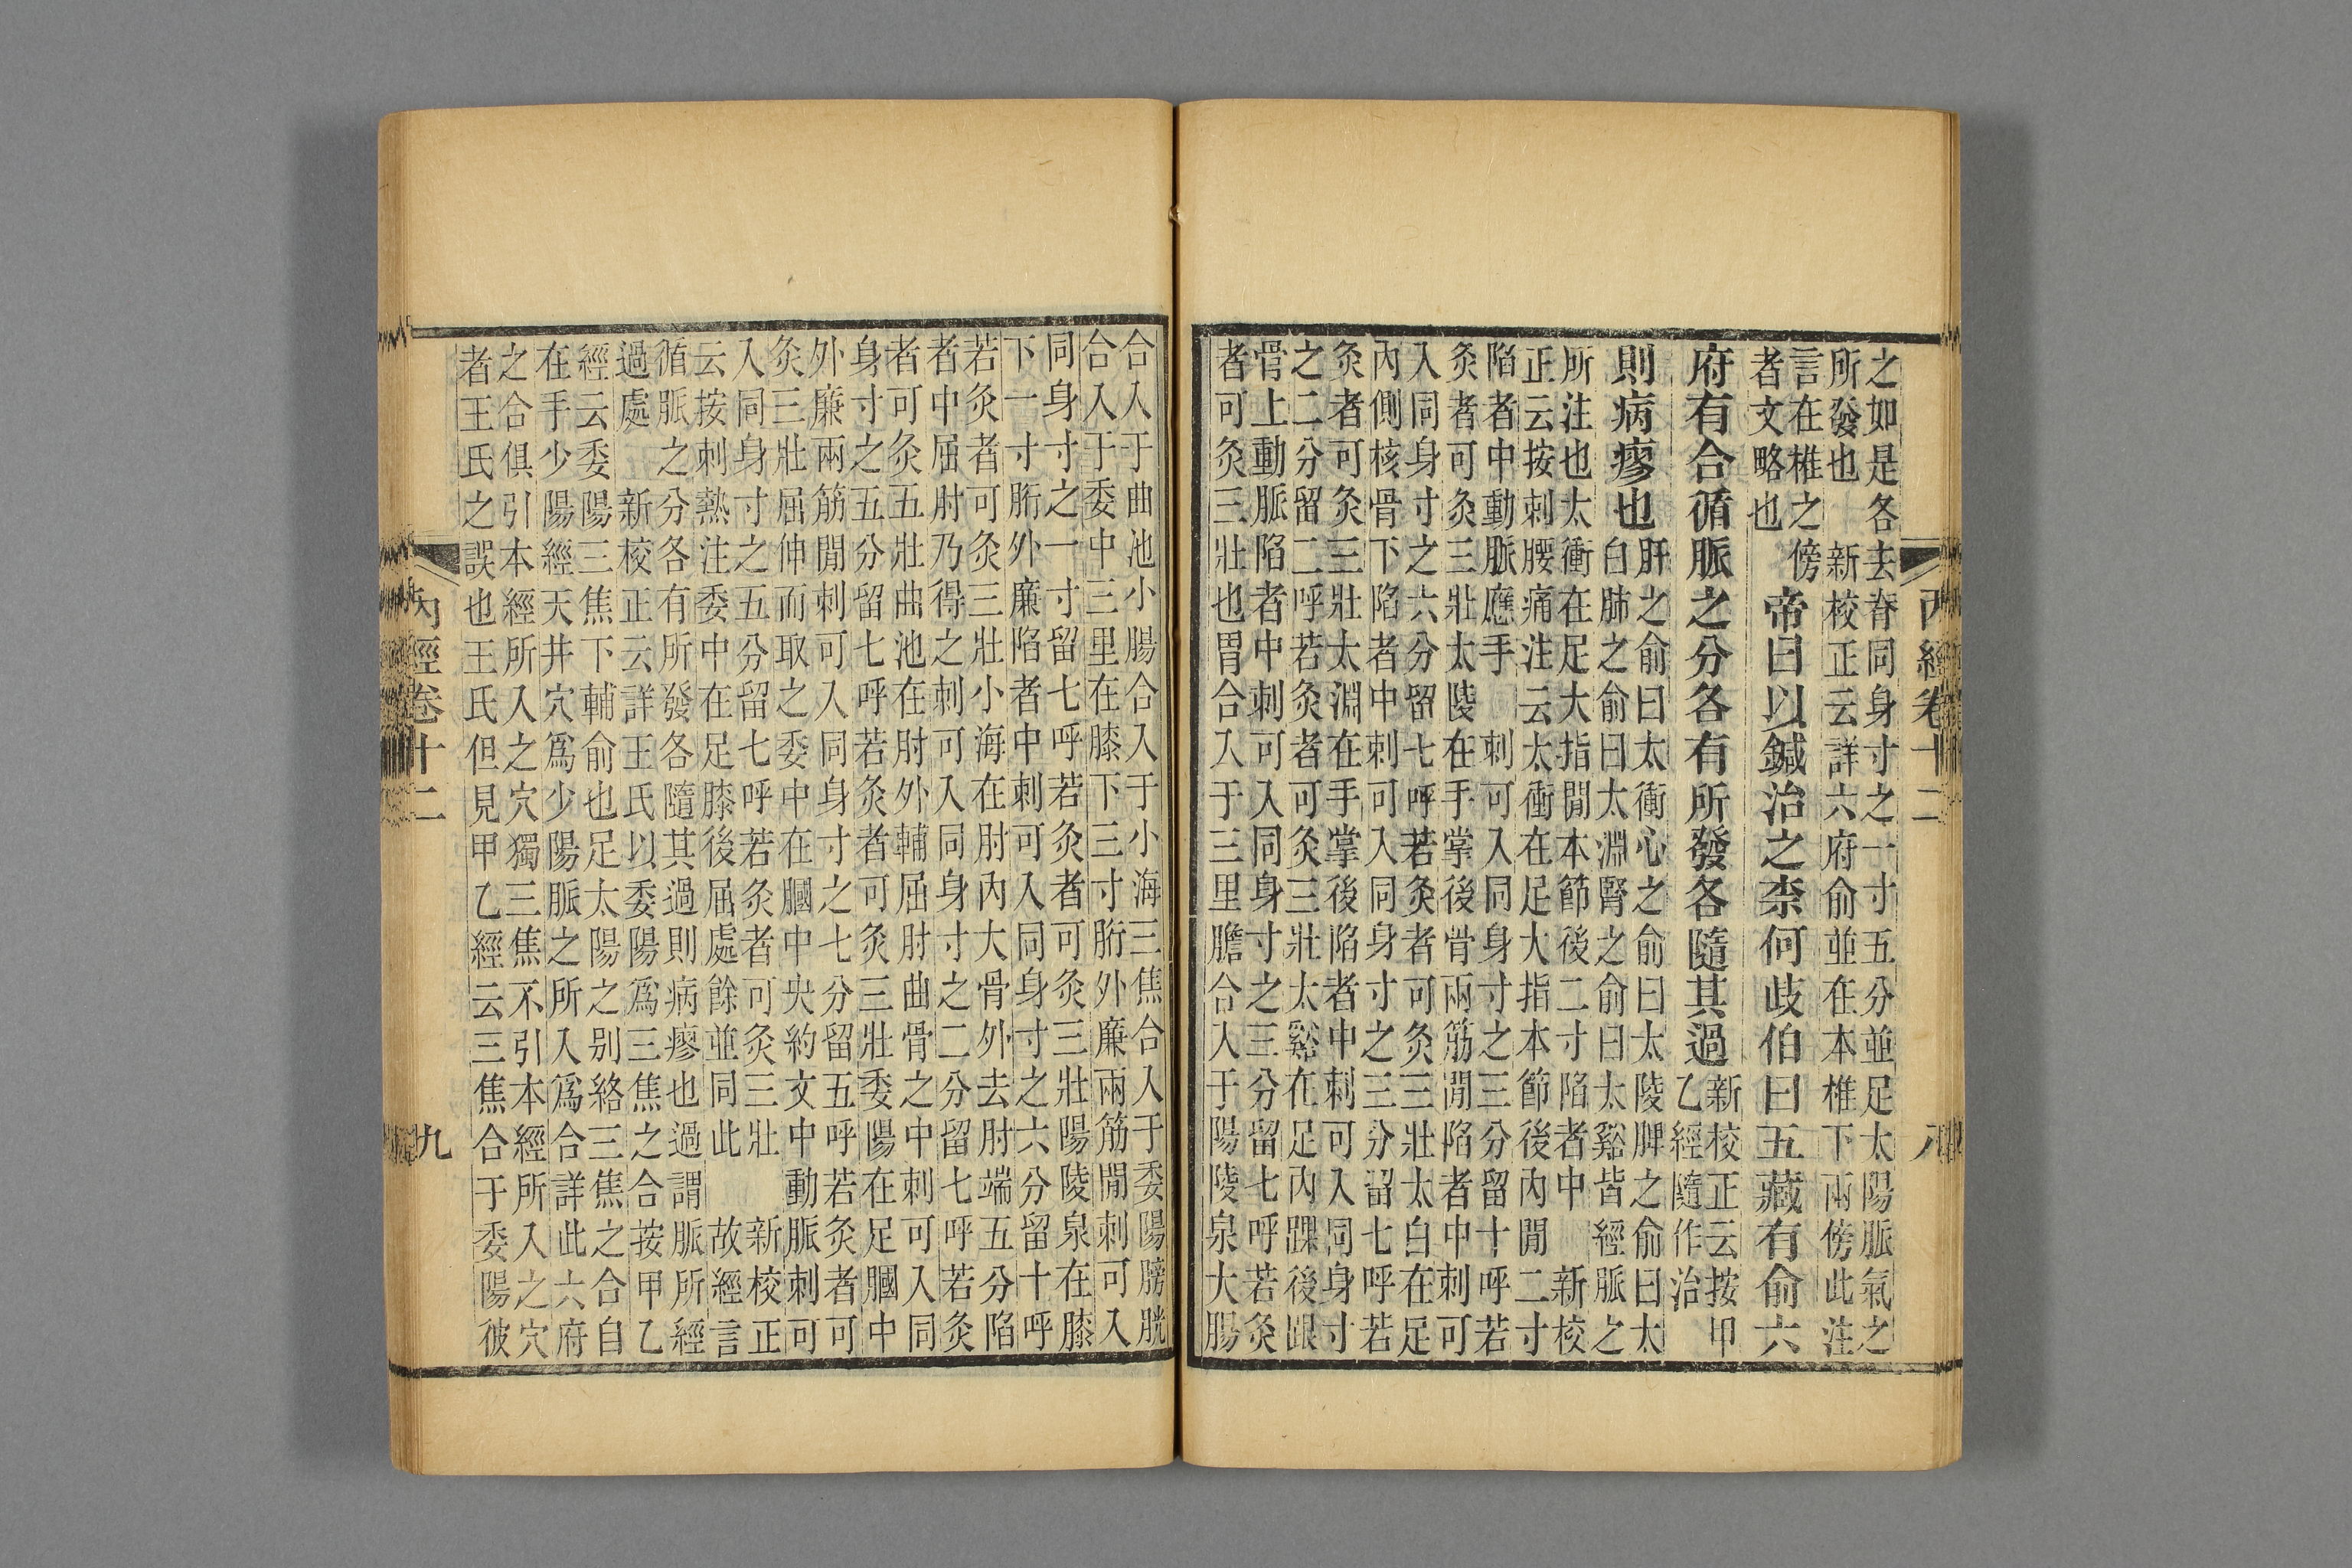 內經卷十二 八
之如是各去脊同身寸之一寸五分並足太陽脈氣之
所發也 新校正云詳六府俞並在本椎下兩傍此注
言在椎之傍
者文略也
帝曰以鍼治之柰何歧伯曰五藏有俞六
府有合循脈之分各有所發各隨其過
新校正云按甲
乙經隨作治
則病瘳也
肝之俞曰太衝心之俞曰太陵脾之俞曰太
白肺之俞曰太淵腎之俞曰太谿皆經脈之
所注也太衝在足大指閒本節後二寸陷者中 新校
正云按刺腰痛注云太衝在足大指本節後內閒二寸
陷者中動脈應手 刺可入同身寸之三分留十呼若
灸者可灸三壯太陵在手掌後骨兩筋閒陷者中刺可
入同身寸之六分留七呼若灸者可灸三壯太白在足
內側核骨下陷者中刺可入同身寸之三分留七呼若
灸者可灸三壯太淵在手掌後陷者中刺可入同身寸
之二分留二呼若灸者可灸三壯太谿在足內踝後跟
骨上動脈陷者中刺可入同身寸之三分留七呼若灸
者可灸三壯也胃合入于三里膽合入于陽陵泉大腸
合入于曲池小腸合入于小海三焦合入于委陽膀胱
合入于委中三里在膝下三寸胻外廉兩筋閒刺可入
同身寸之一寸留七呼若灸者可灸三壯陽陵泉在膝
下一寸胻外廉陷者中刺可入同身寸之六分留十呼
若灸者可灸三壯小海在肘內大骨外去肘端五分陷
者中屈肘乃得之刺可入同身寸之二分留七呼若灸
者可灸五壯曲池在肘外輔屈肘曲骨之中刺可入同
身寸之五分留七呼若灸者可灸三壯委陽在足膕中
外廉兩筋閒刺可入同身寸之七分留五呼若灸者可
灸三壯屈伸而取之委中在膕中央約文中動脈刺可
入同身寸之五分留七呼若灸者可灸三壯 新校正
云按刺熱注委中在足膝後屈處餘並同此 故經言
循脈之分各有所發各隨其過則病瘳也過謂脈所經
過處 新校正云詳王氏以委陽爲三焦之合按甲乙
經云委陽三焦下輔俞也足太陽之别絡三焦之合自
在手少陽經天井穴爲少陽脈之所入爲合詳此六府
之合俱引本經所入之穴獨三焦不引本經所入之穴
者王氏之誤也王氏但見甲乙經云三焦合于委陽彼
內經卷十二 九